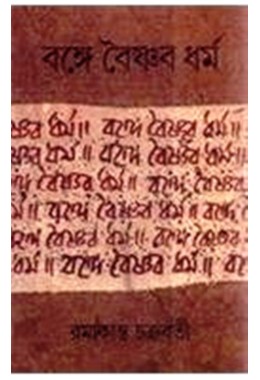 বঙ্গে বৈষ্ণব ধর্ম
ষ্ণব ধর্ম॥ বঙ্গে বৈষ্ণব ধর্ম॥
ষ্ণব ধর্ম॥ বঙ্গে বৈষ্ণব ধর্ম॥
ঙ্গে বৈষ্ণব ধর্ম॥ বঙ্গে বৈষ্ণব
র্ম॥ বঙ্গে বৈষ্ণব ধর্ম॥ বঙ্গে বৈ
ঙ্গে বৈষ্ণব ধর্ম॥ বঙ্গে বৈষ্ণব
ধর্ম॥ বঙ্গে বৈষ্ণব ধর্ম॥ বঙ্গে
রমাকান্ত চক্রবর্তী